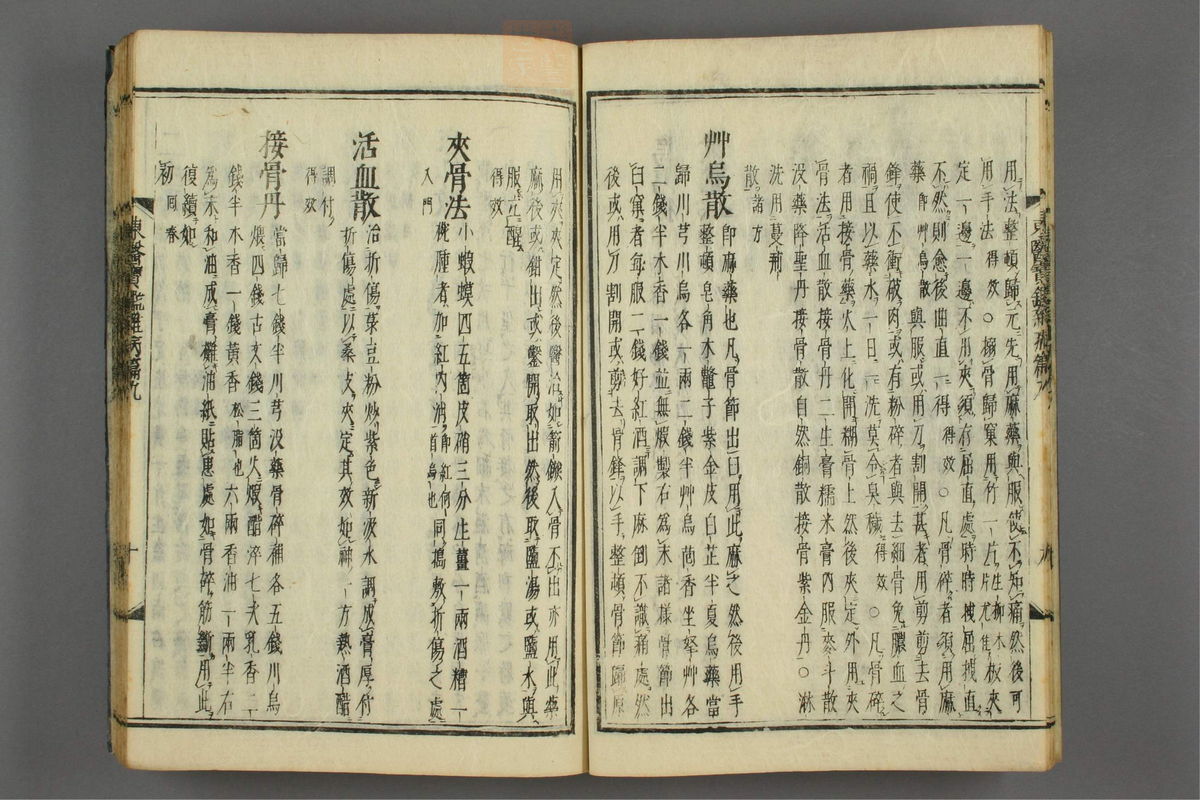 用法整頓歸元先用麻藥與服使不知痛然後可
用手法得效○搦骨歸窠用竹一片生柳木板夾
定一邊一邊不用夾須存屈直處時時拽屈拽直
不然則愈後曲直不得得效○凡骨碎者須用麻
藥卽艸烏散與服或用刀割開甚者用剪剪去骨
鋒使不衝破肉或有粉碎者與去細骨免膿血之
禍且以藥水一日一洗莫令臭穢得效○凡骨碎
者用接骨藥火上化開糊骨上然後夾定外用夾
骨法活血散接骨丹二生膏糯米膏內服麥斗散
沒藥降聖丹接骨散自然銅散接骨紫金丹○淋
洗用蔓荊
散諸方
艸烏散
卽麻藥也凡骨節出臼用此麻之然後用手
整頓皂角木鼈子紫金皮白芷半夏烏藥當
歸川芎川烏各一兩二錢半艸烏茴香坐拏艸各
二錢半木香一錢並無煆製右爲末諸樣骨節出
臼窠者每服二錢好紅酒調下麻倒不識痛處然
後或用刀割開或剪去骨鋒以手整頓骨節歸原
東醫寶鑑雜病篇九
九
用夾夾定然後醫治如箭鏃入骨不出亦用此藥
麻後或鉗出或鑿開取出然後取鹽湯或鹽水與
服立醒
得效
夾骨法
小蝦蟆四五箇皮硝三分生薑一兩酒糟一
椀腫者加紅內消卽紅何首烏也同搗敷折傷之處
入門
活血散
治折傷菉豆粉炒紫色新汲水調成膏厚付
折傷處以桑皮夾定其效如神一方熱酒醋
調付
得效
接骨丹
當歸七錢半川芎沒藥骨碎補各五錢川烏
煨四錢古文錢三箇火煆醋淬七次乳香二
錢半木香一錢黃香松脂也六兩香油一兩半右
爲末和油成膏攤油紙貼患處如骨碎筋斷用此
復續如
初回春
東醫寶鑑雜病篇九
十